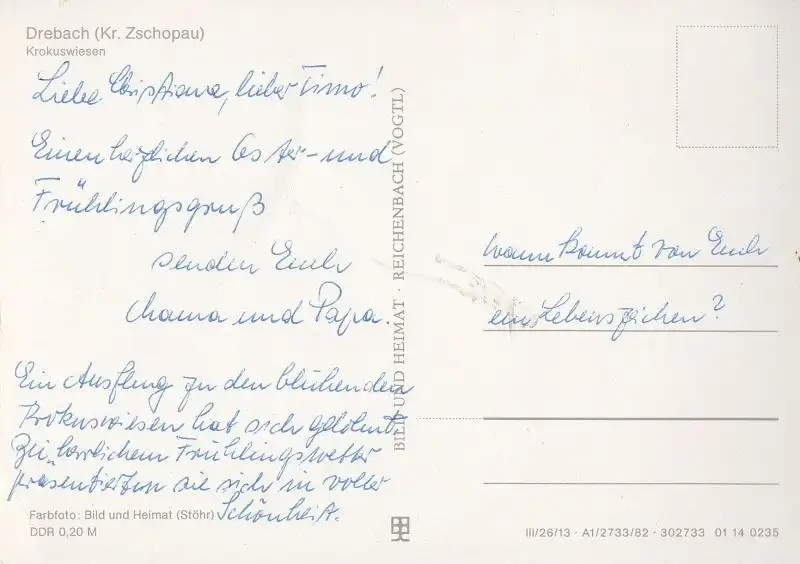 Drebach (Kr. Zschopau)
Krokuswiesen
Liebe Christiana, lieber Timo!
Einen herzlichen Oster- und
Frühlingsgruß
senden Euch
Mama und Papa.
Ein Ausflug zu den blühenden
Krokuswiesen hat sich gelohnt.
Bei herrlichem Frühlingswetter
präsentierten sie sich in voller
Schönheit.
Farbfoto: Bild und Heimat (Stöhr)
DDR 0,20 M
BILD UND HEIMAT · REICHENBACH (VOGTL)
Wann kommt von Euch
ein Lebenszeichen?
III/26/13 · A1/2733/82 · 302733 01 14 0235